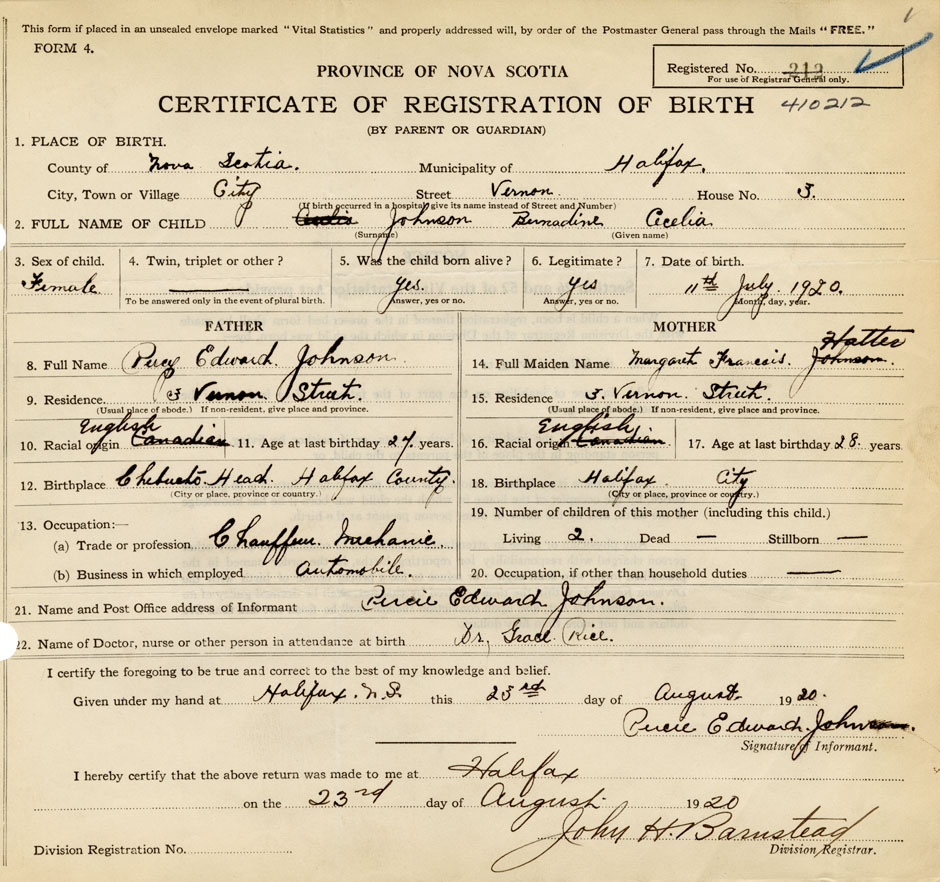 This form if placed in an unsealed envelope marked "Vital Statistics" and properly addressed will, by order of the Postmaster General pass through the Mails "FREE."
FORM 4.
Registered No. 212
For use of Registrar General only.
PROVINCE OF NOVA SCOTIA
CERTIFICATE OF REGISTRATION OF BIRTH 410212
(BY PARENT OR GUARDIAN)
1. PLACE OF BIRTH.
County of Nova Scotia. Municipality of Halifax.
City, Town or Village City Street Vernon House No. 3.
(If birth occurred in a hospital give its name instead of Street and Number)
2. FULL NAME OF CHILD Cecelia Johnson Bernadine Cecelia
(Surname) (Given name)
3. Sex of child. 4. Twin, triplet or other? 5. Was the child born alive? 6. Legitimate? 7. Date of birth.
Female. yes. yes 11th July. 1920.
To be answered only in the event of plural birth. Answer, yes or no. Answer, yes or no. Month, day, year.
FATHER
8. Full Name Percy Edward. Johnson.
9. Residence. 3 Vernon Street.
(Usual place of abode.) If non-resident, give place and province.
English
10. Racial origin Canadian 11. Age at last birthday 27 years.
12. Birthplace Chebucto Head. Halifax County.
(City or place, province or country.)
13. Occupation:—
(a) Trade or profession Chauffeur. Mechanic.
(b) Business in which employed Automobile.
MOTHER
Hatter
14. Full Maiden Name Margaret Francis. Johnson.
15. Residence 3. Vernon. Street.
(Usual place of abode.) If non-resident, give place and province.
English
16. Racial origin Canadian 17. Age at last birthday 28 years
18. Birthplace Halifax City
(City or place, province or country.)
19. Number of children of this mother (including this child.)
Living 2. Dead — Stillborn —
20. Occupation, if other than household duties —
21. Name and Post Office address of Informant Percie Edward Johnson.
22. Name of Doctor, nurse or other person in attendance at birth Dr, Grace Rice.
I certify the foregoing to be true and correct to the best of my knowledge and belief.
Given under my hand at Halifax. N.S. this 23rd day of August. 1920.
Percie Edward. Johnson.
Signature of Informant.
I hereby certify that the above return was made to me at Halifax
on the 23rd day of August. 1920
John H. Barnstead
Division Registration No. Division Registrar.